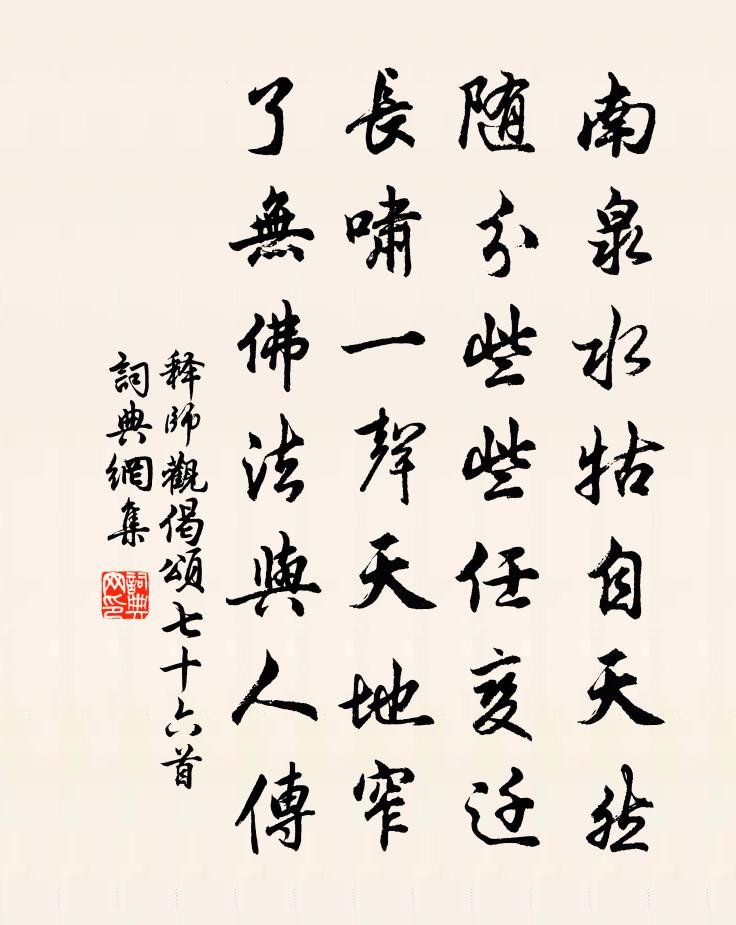 南泉水牯自天然
随分些些任变迁
長嘯一聲天地窄
了無佛法與人傳
释師觀偈頌七十六首
詞典網集
詞典网印